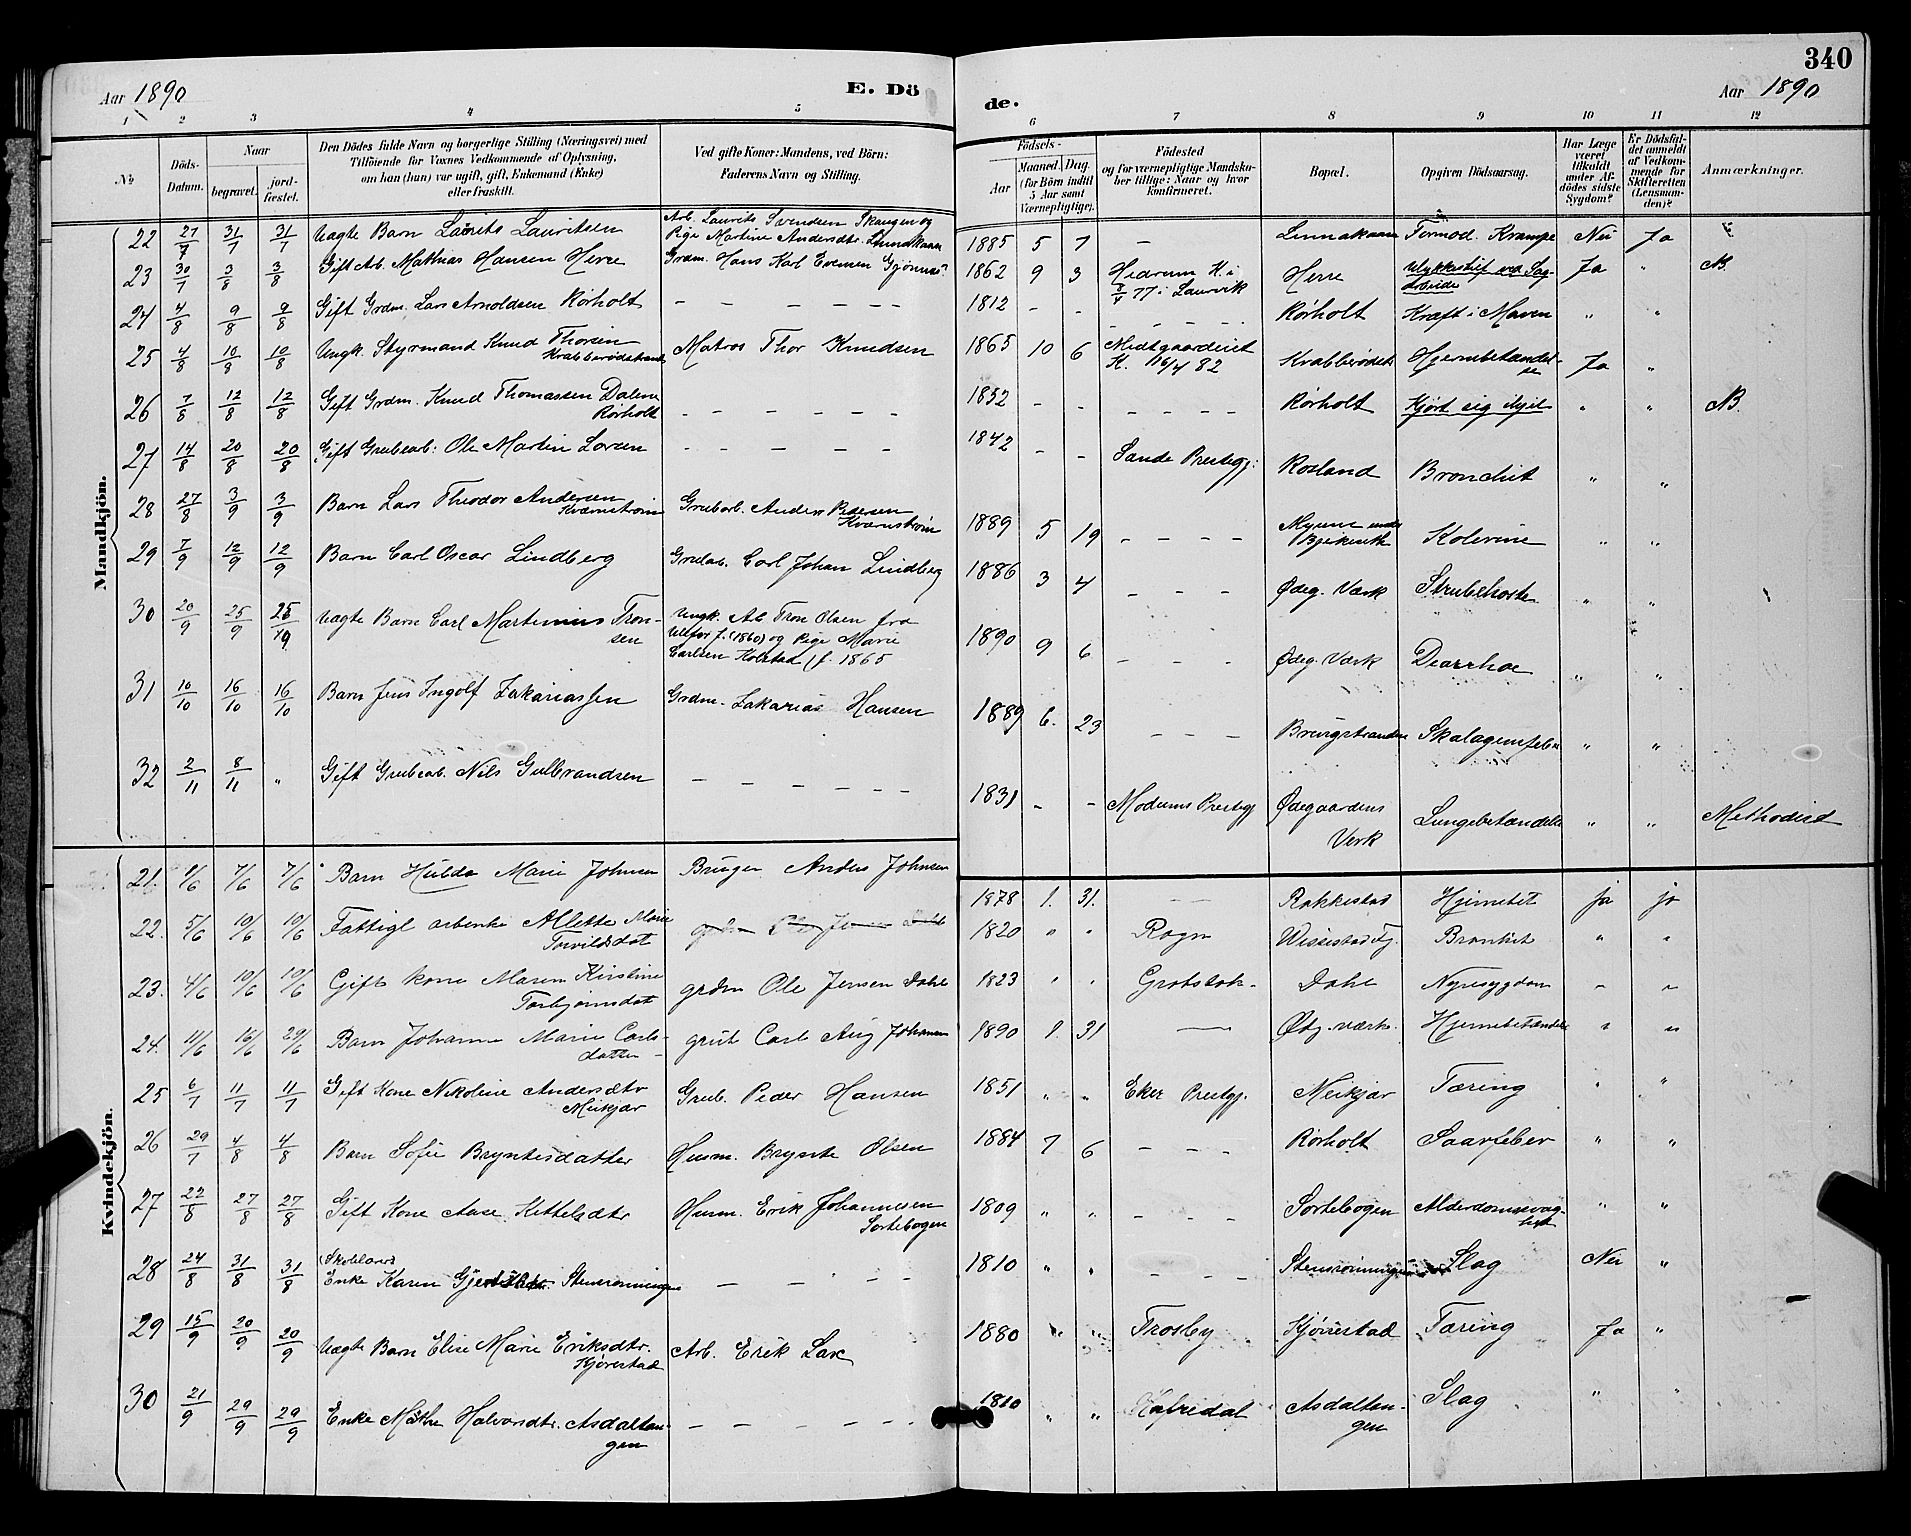 340
Aar 1890
E. Dö
de.
Aar 1890
1 2 3 4 5 6 7 8 9 10 11 12
№
Döds-Datum.
Naar
begravet.
jord-fæstet.
Den Dödes fulde Navn og borgerlige Stilling (Næringsvei) med
Tilföiende for Voxnes Vedkommende af Oplysning,
om han (hun) var ugift, gift, Enkemand (Enke)
eller fraskilt.
Ved gifte Koner: Mandens, ved Börn:
Faderens Navn og Stilling.
Födsels-
Aar
Maaned. Dag.
(for Börn indtil
5 Aar samt
Værnepligtige).
Födested
og for værnepligtige Mandska-
ber tillige: Naar og hvor
konfirmeret.
Bopæl.
Opgiven Dödsaarsag.
Har Læge
været
tilkaldt
under Af-
dödes sidste
Sygdom?
Er Dödsfal-
det anmeldt
af Vedkom-
mende for
Skifteretten
(Lensman-
den)?
Anmærkninger.
Mandkjön.
22 27/7 31/7 31/7 Uægte Barn Laurits Lauritsen Arb. Laurits Svendsen Skaugen og
Pige Martine Andersdtr. 1885 5 7 – Krampe Nei Ja
23 30/7 3/8 3/8 Gift Arb. Mathias Hansen Herre Grdm. Hans Karl Evensen 1862 9 3 Hedrum K. i
77 i Laurvik Herre Ulykkestilf. ved Sag-
arbeide Ja " NB.
24 4/8 9/8 9/8 Gift Grdm. Lars Arnoldsen Rörholt – – – – – 1812 – – – – – – Rörholt Kræft i Maven " "
25 4/8 10/8 10/8 Ungk. Styrmand Knud Thorsen
Krabberödstrand Matros Thor Knudsen 1865 10 6 Midtgaarden
K. 16/4 82 Hjernebetændel-
se Ja "
26 7/8 12/8 12/8 Gift Grdm. Knud Thomassen Dalene
Rörholt – – – – – 1832 – – – – – – Rörholt Kjört sig ihjel " " NB.
27 14/8 20/8 20/8 Gift Grubearb: Ole Martin Larsen – – – – – 1842 – – Sande Prestegj: Rosland Bronchit " "
28 27/8 3/9 3/9 Barn Lars Theodor Andersen
Kværnström Grubarb. Anders Pedersen
Kværnström 1889 5 19 – – – – under Kolerine " "
29 7/9 12/9 12/9 Barn Carl Oscar Lindberg Grubab. Carl Johan Lindberg 1886 3 4 – – – Ödeg. Værk Strubehoste " "
30 20/9 25/9 25/9 Uægte Barn Carl Martinius Tron-
sen Ungk. Arb Tron Olsen fra
f. (1860) og Pige Marie
Carlsen Kolstad f. 1865 1890 9 6 – – – Ödeg. Værk Diarrhoe " "
31 10/10 16/10 16/10 Barn Jens Ingolf Zakariassen Grdm. Zakarias Hansen 1889 6. 23 – – – Brevigstranden Skalagensfeber " "
32 2/11 8/11 " Gift Grubearb. Nils Gulbrandsen – – – – – 1831 – – Modums Prestegj Ödegaardens
Verk Lungebetændelse " " Methodist
Kvindekjön.
21. 1/6 7/6 7/6 Barn Hulda Marie Johnsen Bruger Anders Johnsen 1878 1. 31. – – Rakkestad Hjernebet ja ja
22. 5/6 10/6 10/6 Fattigl arbenke Allette Marie
Torvildsdat 1820 " " Bronkit " "
23. 4/6 10/6 10/6 Gift kone Maren Kirstine
Torbjörnsdat grdm Ole Jensen Dahl 1823 " " Dahl Nyresygdom – –
24. 11/6 16/6 29/6 Barn Johanne Marie Carls-
datter – grub Carl Aug Johansen 1890 1. 31 — Ödg. værk. Hjernebetændelse " "
25 6/7 11/7 11/7 Gift Kone Nikoline Andersdtr
Meikjær Grub. Peder Hansen 1851 " " Eker Prestgj. Meikjær Tæring " "
26 29/7 4/8 4/8 Barn Sofie Bryntesdatter Husm. Brynte Olsen 1884 7 6 – – – Rörholt Saarfeber " "
27 22/8 27/8 27/8 Gift Kone Aase Kittelsdtr Husm. Erik Johannesen
Sortebogen 1809 " " – – – Sortebogen Alderdomssvag-
hed " "
28 24/8 31/8 31/8 Enke Karen Stensrönningen – – – – 1810 " " – – – Stensrönningen Slag Nei "
29 15/9 20/9 20/9 Uægte Barn Elise Marie Eriksdtr.
Kjörestad Arb. Erik Lax 1880 " " Trosby Kjörrestad Tæring Ja "
30 21/9 29/9 29/9 Enke Halvorsdtr. Asdaltan-
gen – – – – – 1810 " " Asdaltan-
gen Slag " "